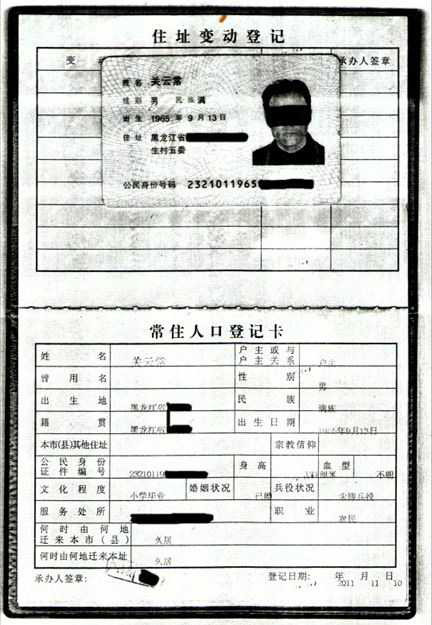 住址变动登记
变
承办人签章
姓名 关云常
性别 男 民族 满
出生 1965 年 9 月 13 日
住址 黑龙江省
生村五委
公民身份号码 2321011965
常住人口登记卡
姓名 户主或与户主关系 户主
曾用名 性别 男
出生地 黑龙江省 民族 满族
籍贯 黑龙江省 出生日期 年9月13日
本市(县)其他住址 宗教信仰
公民身份证件编号 23210119 身高 血型 不明
文化程度 小学毕业 婚姻状况 已婚 兵役状况
服务处所 职业 农民
何时由何地迁来本市(县) 久居
何时由何地迁来本址 久居
承办人签章: 登记日期: 年 月 日
2011 11 10